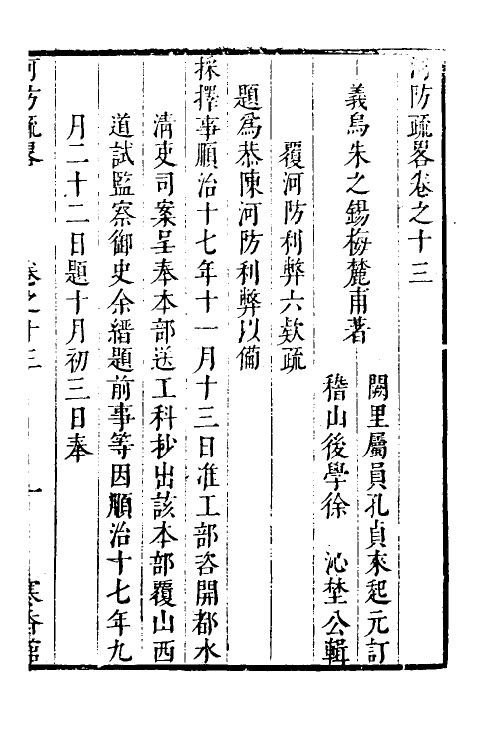 河防疏畧卷之十三
義烏朱之錫梅麓甫著
闕里屬員孔貞來起元訂
稽山後學徐　沁埜公輯
覆河防利弊六欵疏
題爲恭陳河防利弊以備
採擇事順治十七年十一月十三日准工部咨開都水
清吏司案呈奉本部送工科抄出該本部覆山西
道試監察御史余縉題前事等因順治十七年九
月二十二日題十月初三日奉
河防疏畧
卷之十三
一
寒香館